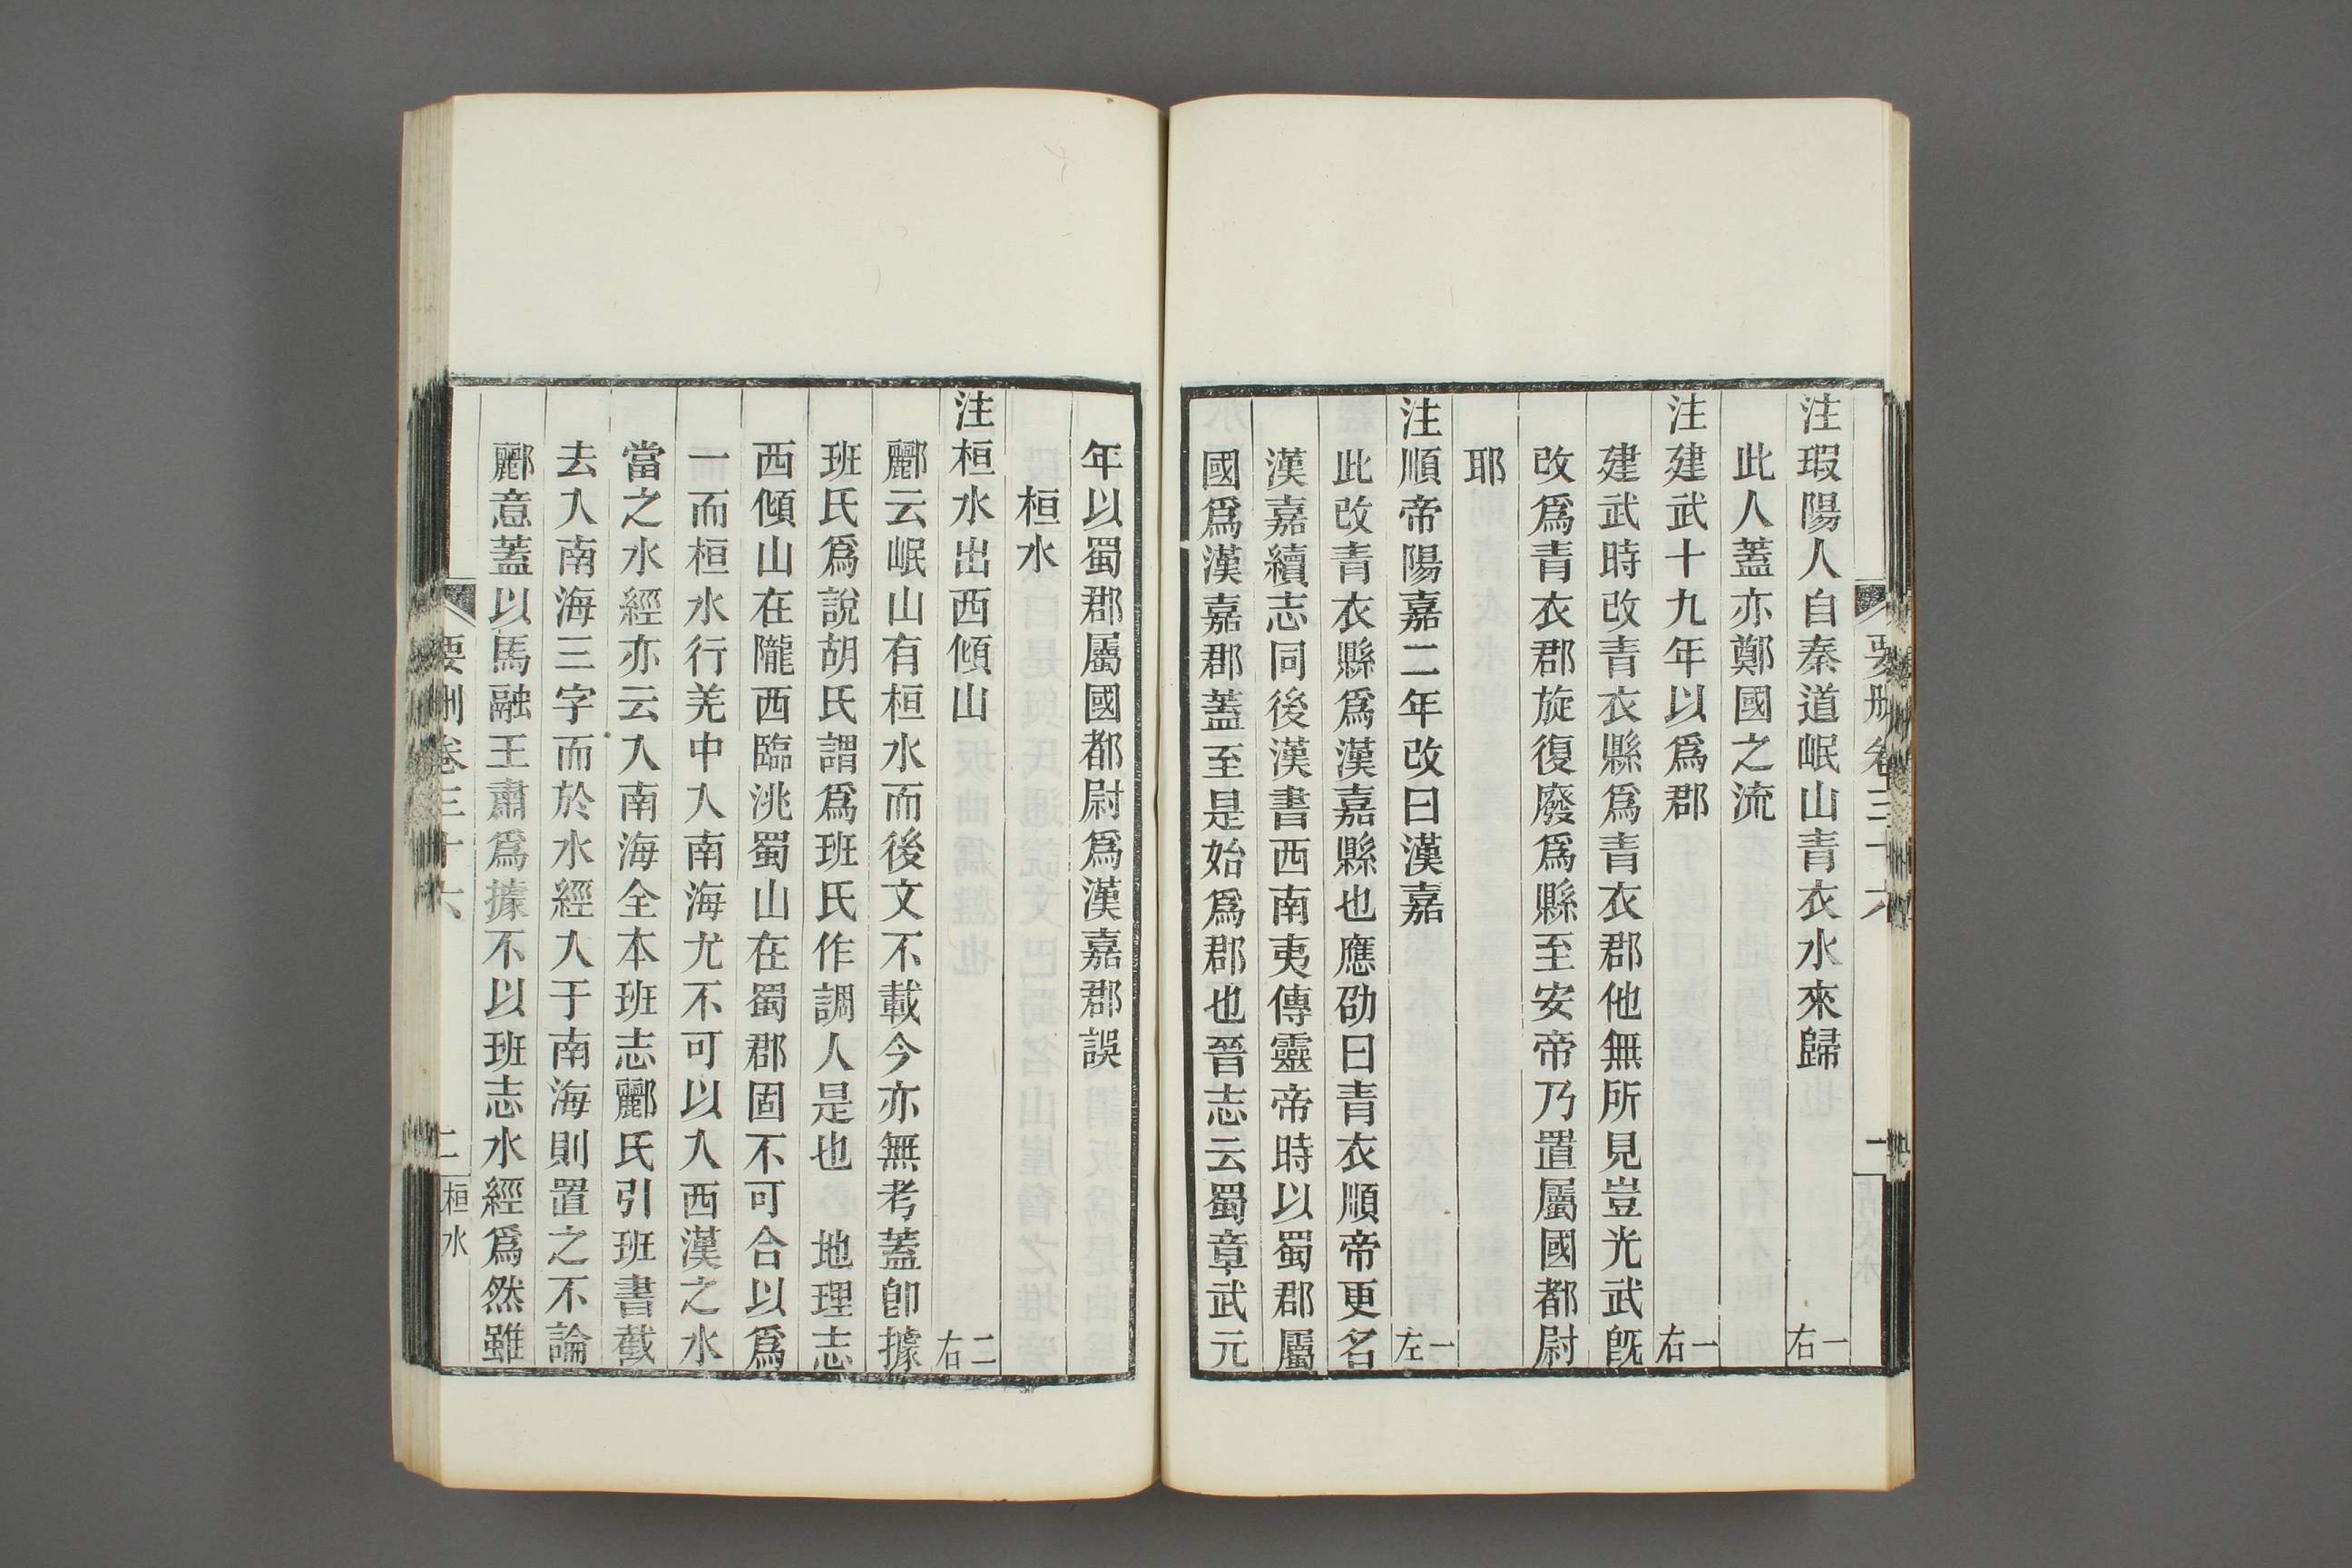 要删卷三十六
一
注瑕陽人自秦道岷山青衣水來歸 一右
此人蓋亦鄭國之流
注建武十九年以爲郡 一右
建武時改青衣縣爲青衣郡他無所見豈光武旣
改爲青衣郡旋復廢爲縣至安帝乃置屬國都尉
耶
注順帝陽嘉二年改曰漢嘉 一左
此改青衣縣爲漢嘉縣也應劭曰青衣順帝更名
漢嘉續志同後漢書西南夷傳靈帝時以蜀郡屬
國爲漢嘉郡蓋至是始爲郡也晉志云蜀章武元
年以蜀郡屬國都尉爲漢嘉郡誤
桓水
注桓水出西傾山 二右
酈云岷山有桓水而後文不載今亦無考蓋卽據
班氏爲說胡氏謂爲班氏作調人是也 地理志
西傾山在隴西臨洮蜀山在蜀郡固不可合以爲
一而桓水行羌中入南海尤不可以入西漢之水
當之水經亦云入南海全本班志酈氏引班書截
去入南海三字而於水經入于南海則置之不論
酈意蓋以馬融王肅爲據不以班志水經爲然雖
要删卷三十六
二
桓水